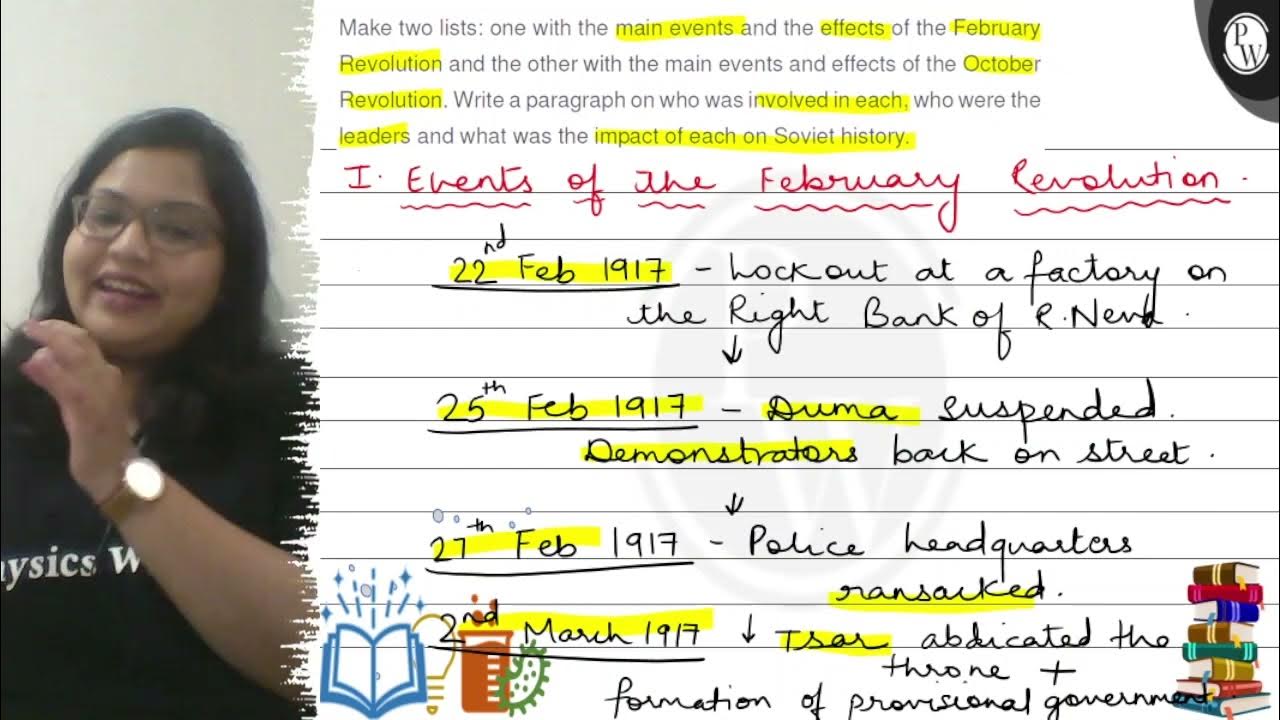 Make two lists: one with the main events and the effects of the February
Revolution and the other with the main events and effects of the October
Revolution. Write a paragraph on who was involved in each, who were the
leaders and what was the impact of each on Soviet history.
PW
I. Events of the February Revolution.
22nd Feb 1917 - Lockout at a factory on
the Right Bank of R. Neva.
↓
25th Feb 1917 - Duma suspended.
Demonstrators back on street.
↓
27th Feb 1917 - Police headquarters
ransacked.
2nd March 1917 ↓ Tsar abdicated the
throne +
formation of provisional government
ysics W